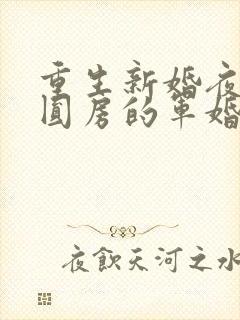 重生新婚夜
圆房的军婚
夜飲天河之水